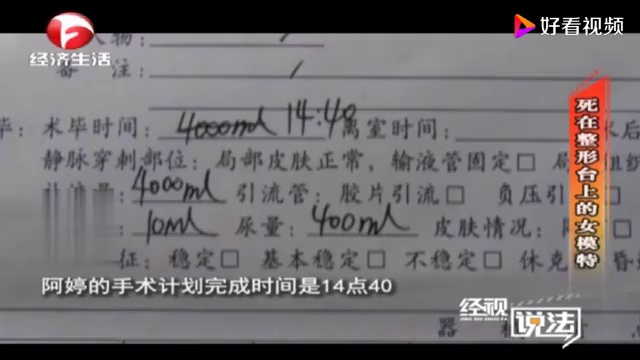 好看视频
经济生活
备 注：
术毕时间：4000ml 14:40 离室时间：
静脉穿刺部位：局部皮肤正常，输液管固定□
4000ml 引流管：胶片引流□ 负压引
10ml 尿量：400ml 皮肤情况：
征：稳定□ 基本稳定□ 不稳定□ 休克
阿婷的手术计划完成时间是14点40
死在整形台上的女模特
经视
说法
器